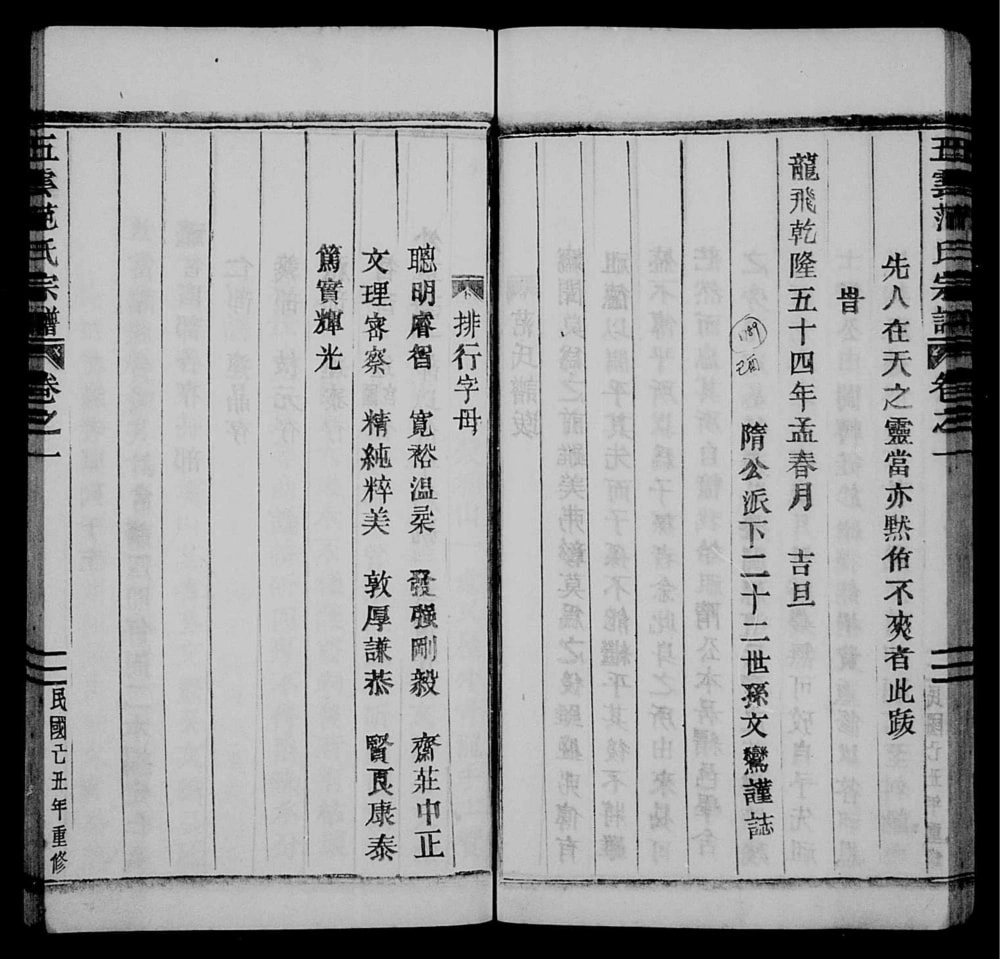 五雲范氏宗譜 卷之一
先人在天之靈當亦默佑不爽者此跋
旹
龍飛乾隆五十四年孟春月 吉旦
1789
己酉
隋公派下二十二世孫文鸞謹誌
排行字母
聰明睿智 寬裕温柔 發强剛毅 齋莊中正
文理密察 精純粹美 敦厚謙恭 賢良康泰
篤實輝光
五雲范氏宗譜 卷之一 民國己丑年重修